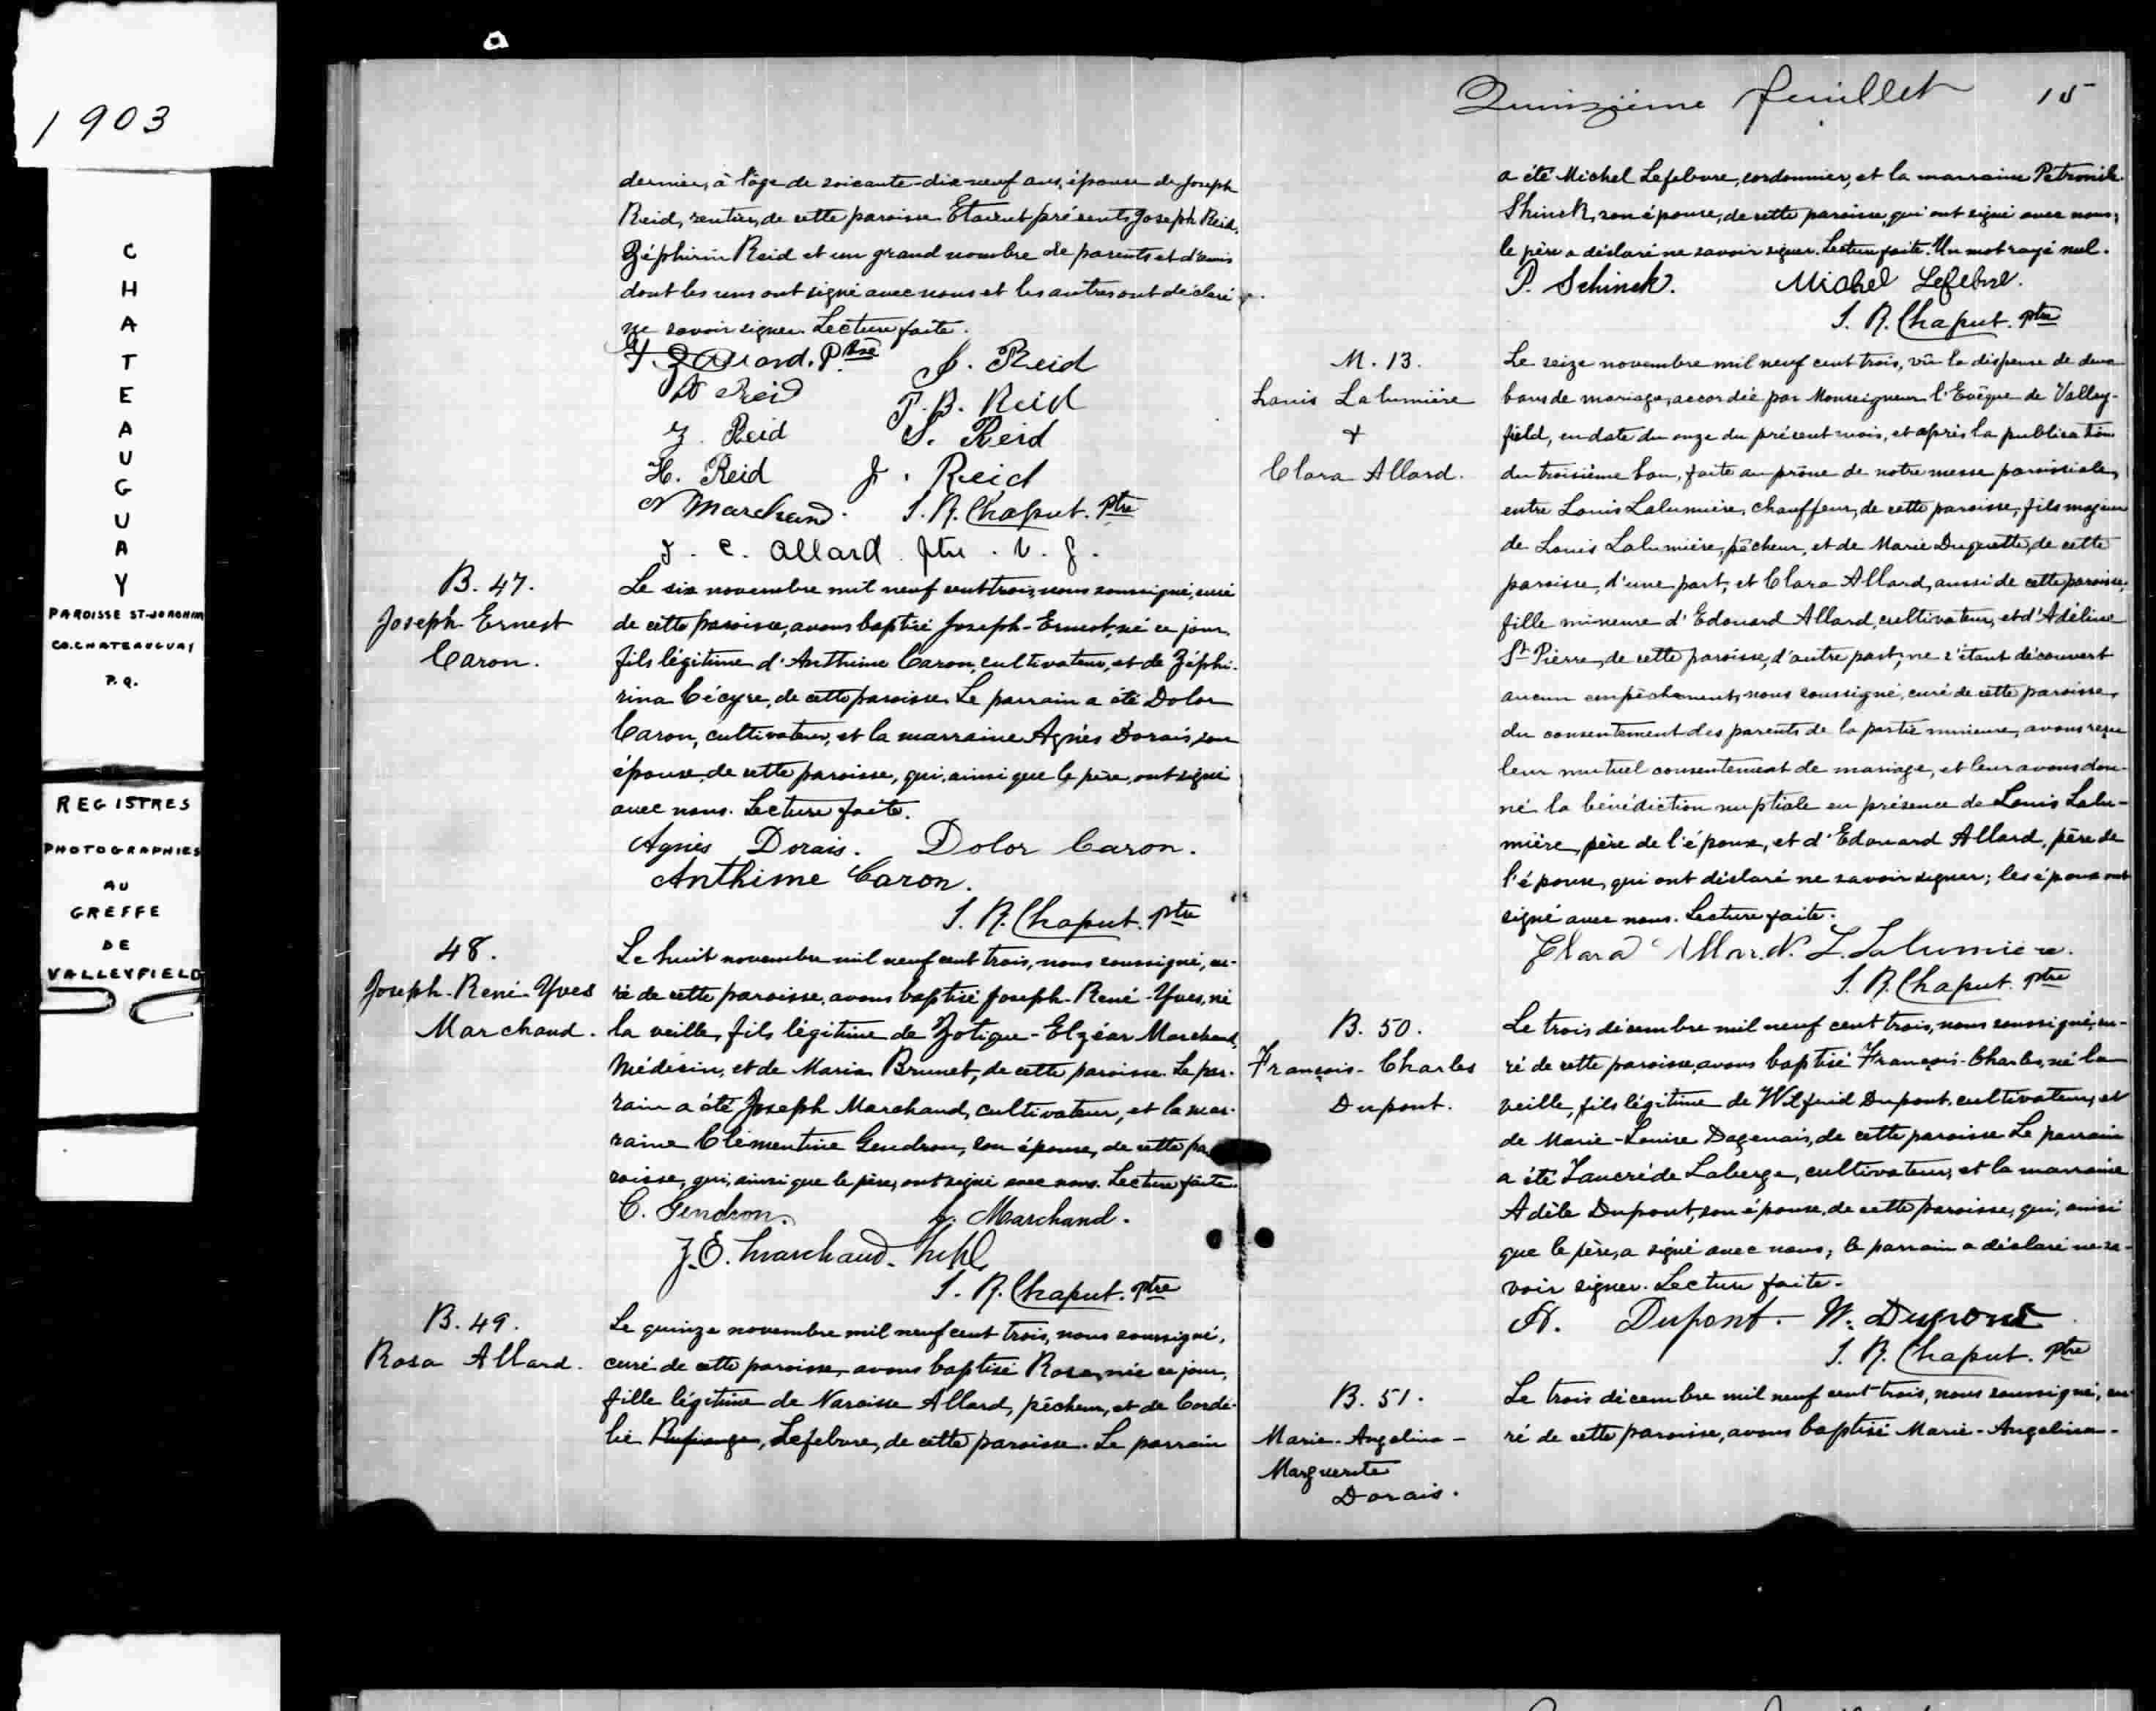 1903
CHATEAUGUAY
PAROISSE ST-JOACHIM
CO. CHATEAUGUAY
P.Q.
REGISTRES
PHOTOGRAPHIES
AU
GREFFE
DE
VALLEYFIELD
dernier, à l'âge de soixante-dix-neuf ans, épouse de Joseph
Reid, rentier, de cette paroisse. Etaient présents Joseph Reid,
Zéphirin Reid et un grand nombre de parents et d'amis
dont les uns ont signé avec nous et les autres ont déclaré
ne savoir signer. Lecture faite.
Ptre J. Reid
Reid J. B. Reid
Z. Reid S. Reid
H. Reid J. Reid
N Marchand. J. R. Chaput. Ptre
J. C. Allard ptre. V. g.
B. 47.
Joseph-Ernest
Caron.
Le six novembre mil neuf cent trois, nous soussigné, curé
de cette paroisse, avons baptisé Joseph-Ernest, né ce jour,
fils légitime d'Anthime Caron, cultivateur, et de Zéphi-
rina Cécyre, de cette paroisse. Le parrain a été Dolor
Caron, cultivateur, et la marraine Agnès Dorais, son
épouse, de cette paroisse, qui, ainsi que le père, ont signé
avec nous. Lecture faite.
Agnès Dorais. Dolor Caron.
Anthime Caron.
J. R. Chaput. Ptre
48.
Joseph-René-Yves
Marchand.
Le huit novembre mil neuf cent trois, nous soussigné, cu-
ré de cette paroisse, avons baptisé Joseph-René-Yves, né
la veille, fils légitime de Zotique-Elzéar Marchand,
Médecin, et de Maria Brunet, de cette paroisse. Le par-
rain a été Joseph Marchand, cultivateur, et la mar-
raine Clémentine Gendron, son épouse, de cette pa
roisse, qui, ainsi que le père, ont signé avec nous. Lecture faite.
C. Gendron. J. Marchand.
Z. E. Marchand.
J. R. Chaput. Ptre
B. 49.
Rosa Allard.
Le quinze novembre mil neuf cent trois, nous soussigné,
curé de cette paroisse, avons baptisé Rosa, née ce jour,
fille légitime de Narcisse Allard, pêcheur, et de Cordé-
lie Lefebvre, de cette paroisse. Le parrain
Quinzième feuillet 15
a été Michel Lefebvre, cordonnier, et la marraine Petronile
Shinck, son épouse, de cette paroisse, qui ont signé avec nous;
le père a déclaré ne savoir signer. Lecture faite. Un mot rayé nul.
P. Schinck. Michel Lefebvre.
J. R. Chaput. Ptre
M. 13.
Louis Lalumière
+
Clara Allard.
Le seize novembre mil neuf cent trois, vû la dispense de deux
bans de mariage, accordée par Monseigneur l'Evêque de Valley-
field, en date du onze du présent mois, et après la publication
du troisième ban, faite au prône de notre messe paroissiale,
entre Louis Lalumière, chauffeur, de cette paroisse, fils majeur
de Louis Lalumière, pêcheur, et de Marie Duquette, de cette
paroisse, d'une part, et Clara Allard, aussi de cette paroisse,
fille mineure d'Edouard Allard, cultivateur, et d'Adéline
St Pierre, de cette paroisse, d'autre part; ne s'étant découvert
aucun empêchement, nous soussigné, curé de cette paroisse,
du consentement des parents de la partie mineure, avons reçu
leur mutuel consentement de mariage, et leur avons don-
né la bénédiction nuptiale en présence de Louis Lalu-
mière, père de l'époux, et d'Edouard Allard, père de
l'épouse, qui ont déclaré ne savoir signer; les époux ont
signé avec nous. Lecture faite.
Clara Allard. L. Lalumière.
J. R. Chaput. Ptre
B. 50.
François-Charles
Dupont.
Le trois décembre mil neuf cent trois, nous soussigné, cu-
ré de cette paroisse, avons baptisé François-Charles, né la
veille, fils légitime de Wilfrid Dupont, cultivateur, et
de Marie-Louise Dagenais, de cette paroisse. Le parrain
a été Tancrède Laberge, cultivateur, et la marraine
Adèle Dupont, son épouse, de cette paroisse, qui, ainsi
que le père, a signé avec nous; le parrain a déclaré ne sa-
voir signer. Lecture faite.
A. Dupont. W. Dupont
J. R. Chaput. Ptre
B. 51.
Marie-Angelina-
Marguerite
Dorais.
Le trois décembre mil neuf cent trois, nous soussigné, cu-
ré de cette paroisse, avons baptisé Marie-Angelina-